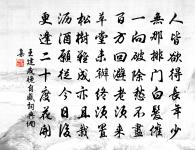 人皆欲得長年少
無那排門白髮催
一向破除愁不盡
百方回避老須來
草堂未辦終須置
松樹難成亦且栽
瀝酒願從今日後
更逢二十度花開
王建歲晚自感詞典網
集